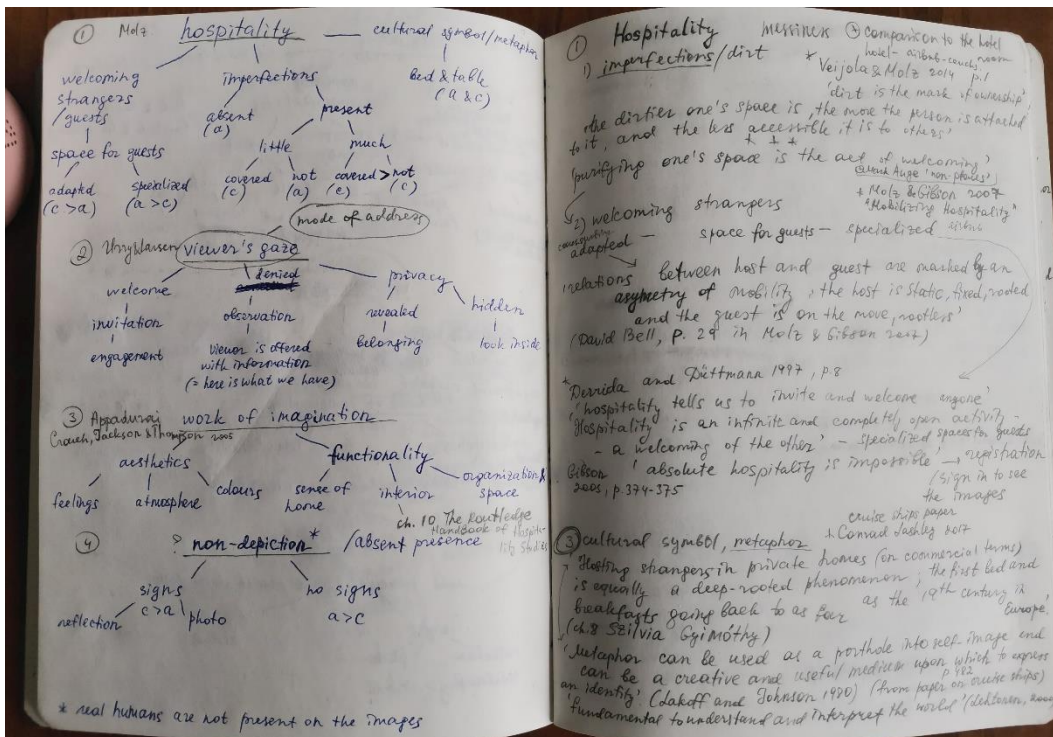 ① Molz hospitality — cultural symbol/metaphor
welcoming strangers /guests
imperfections
bed & table
(a & c)
absent
(a)
present
space for guests
little
much
adapted
(c > a)
specialized
(a > c)
covered
(c)
not
(a)
covered > not
(c) (c)
mode of address
② Urry&Larsen viewer's gaze
welcome
denied
privacy
invitation
observation
revealed
hidden
engagement
viewer is offered
with information
(= here is what we have)
belonging
look inside
③ Appadurai work of imagination
Crouch, Jackson & Thompson 2005
aesthetics
functionality
feelings
atmosphere
colours
sense of
home
interior
organization &
space
ch. 10 The Routledge
Handbook of Hospita-
lity Studies
④ ? non-depiction* /absent presence
signs
c > a
no signs
a > c
reflection
photo
* real humans are not present on the images
① Hospitality
comparison to the hotel
hotel – airbnb – couch, room
1) imperfections/dirt * Veijola & Molz 2014 p.1
'dirt is the mark of ownership',
'the dirtier one's space is, the more the person is attached
to it, and the less accessible it is to others'
purifying one's space is the act of welcoming'
Augé 'non-places'
+ Molz & Gibson 2007
"Mobilizing Hospitality"
2) welcoming strangers
couchsurfing
airbnb
adapted — space for guests — specialized
'relations between host and guest are marked by an
asymetry of mobility; the host is static, fixed, rooted
and the guest is on the move, rootless'
(David Bell, p. 29 in Molz & Gibson 2007)
* Derrida and Düttmann 1997, p.8
'hospitality tells us to invite and welcome anyone'
'Hospitality is an infinite and completely open activity –
– a welcoming of the other' – specialized spaces for guests
Gibson 'absolute hospitality is impossible' → registration
2003, p.374-375
/sign in to see
the images
cruise ships paper
+ Conrad Lashley 2017
③ cultural symbol, metaphor
'Hosting strangers in private homes (on commercial terms)
is equally a deep-rooted phenomenon; the first bed and
breakfasts going back to as far as the 19th century in
Europe'
(ch.8 Szilvia Gyimóthy)
'Metaphor can be used as a porthole into self image and
can be a creative and useful medium upon which to express
an identity' p.482
(Lakoff and Johnson 1980) (from paper on cruise ships)
'fundamental to understand and interpret the world'